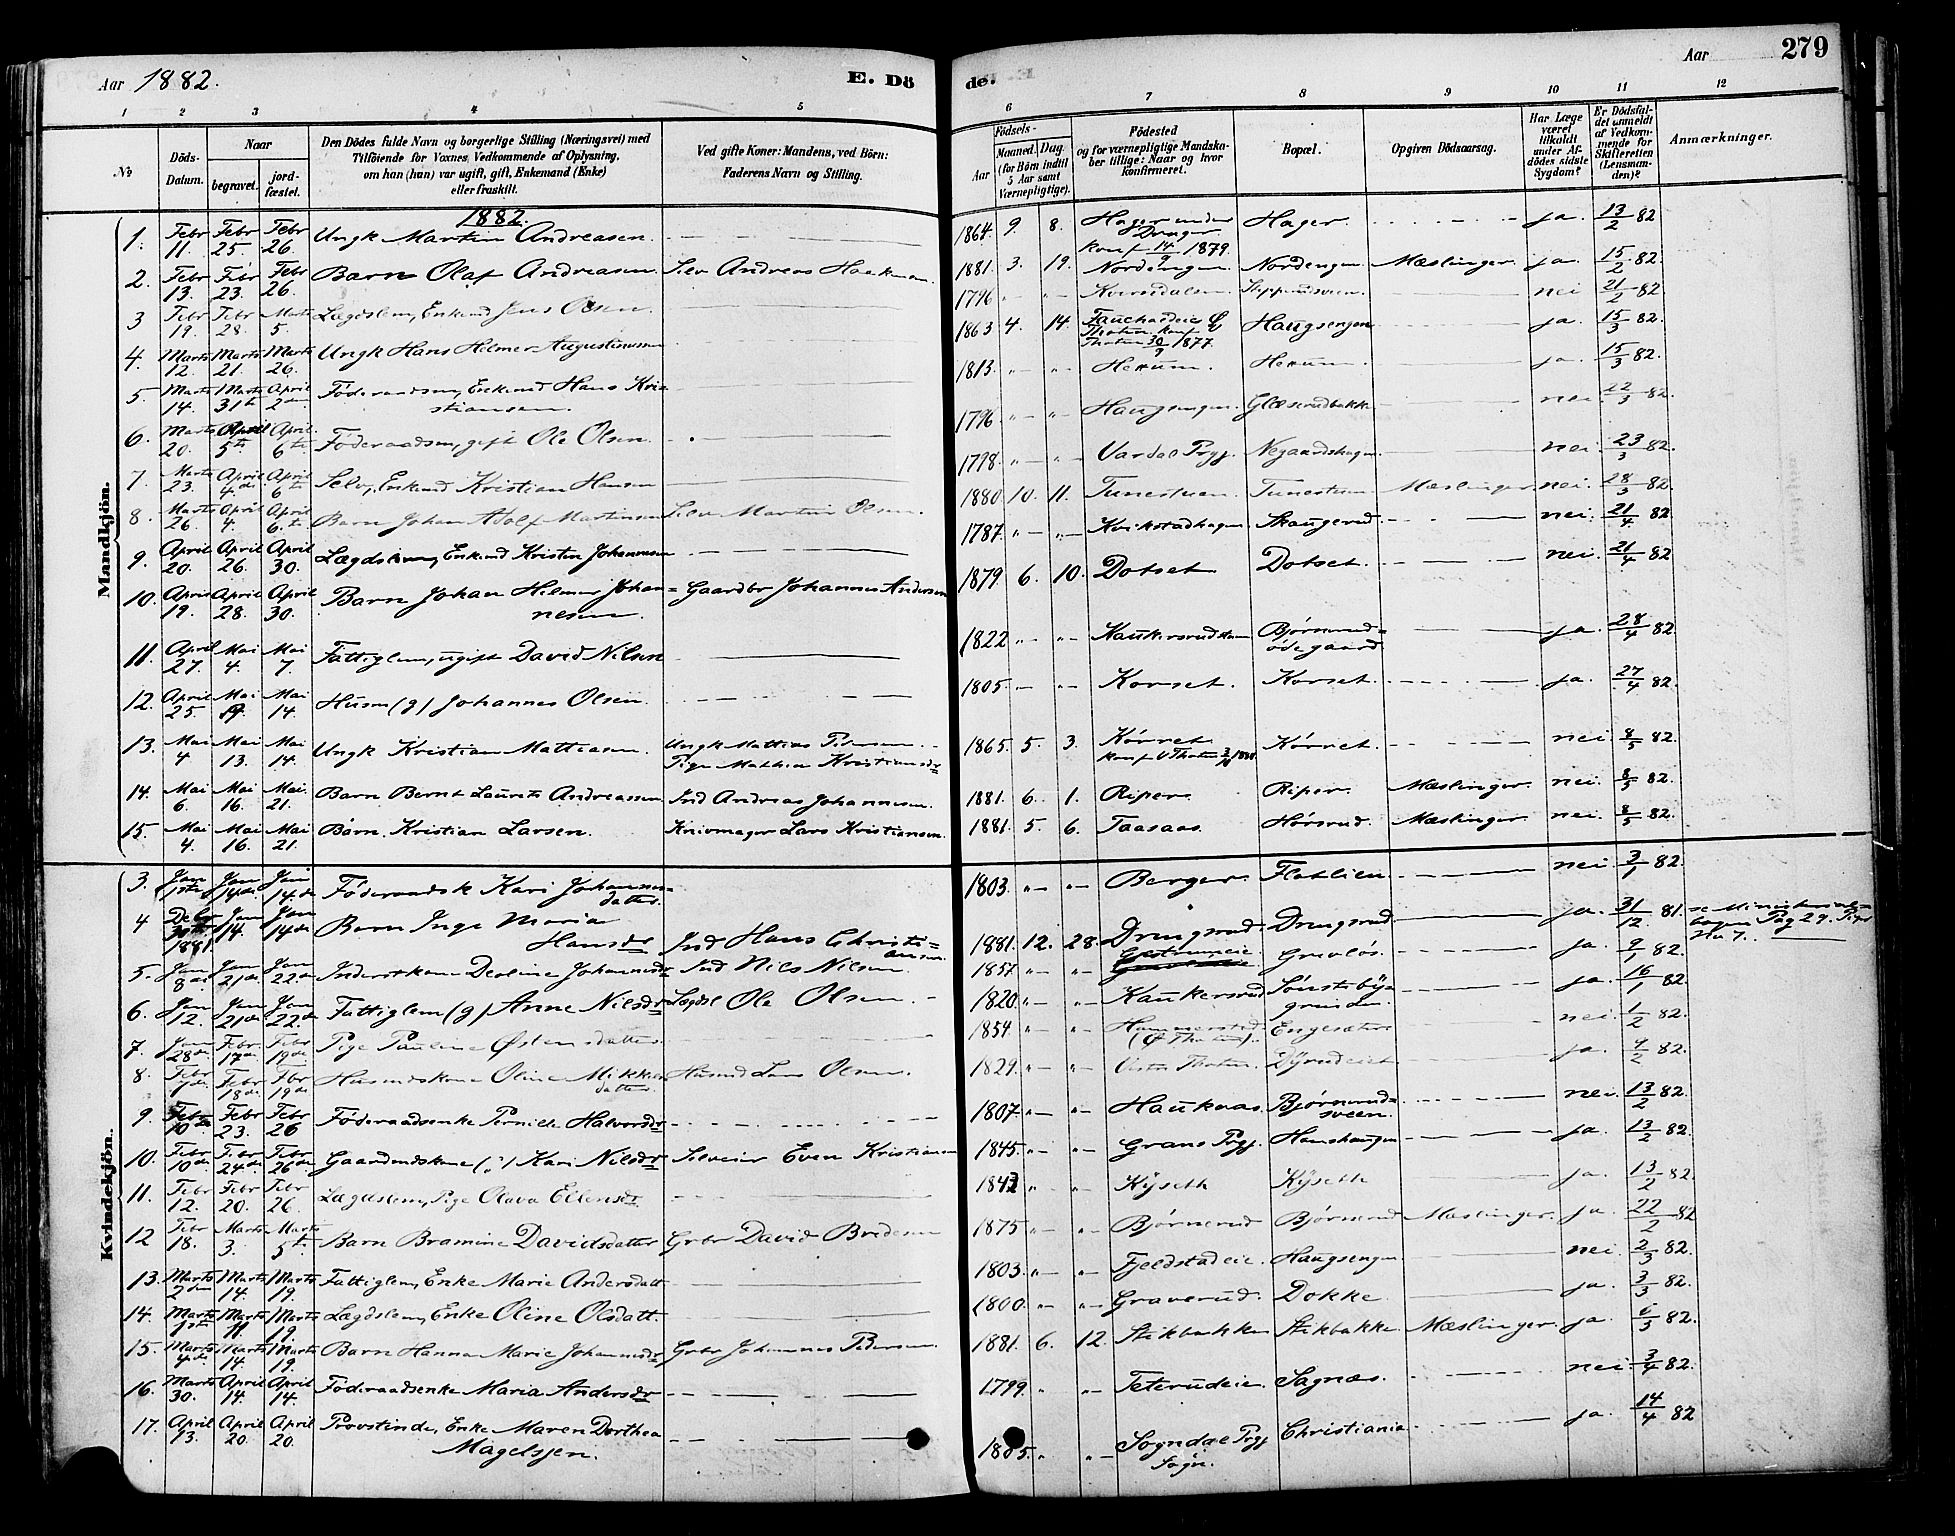 Aar 1882.
E. Dö
de.
Aar
279
1 2 3 4 5 6 7 8 9 10 11 12
No
Döds-
Datum.
Naar
begravet.
jord-
fæstet.
Den Dödes fulde Navn og borgerlige Stilling (Næringsvei) med
Tilföiende for Voxnes Vedkommende af Oplysning,
om han (hun) var ugift, gift, Enkemand (Enke)
eller fraskilt.
Ved gifte Koner: Mandens, ved Börn:
Faderens Navn og Stilling.
Födsels-
Aar
Maaned.
Dag.
(for Börn indtil
5 Aar samt
Værnepligtige).
Födested
og for værnepligtige Mandska-
ber tillige: Naar og hvor
konfirmeret.
Bopæl.
Opgiven Dödsaarsag.
Har Læge
været
tilkaldt
under Af-
dödes sidste
Sygdom?
Er Dödsfal-
det anmeldt
af Vedkom-
mende for
Skifteretten
(Lensman-
den)?
Anmærkninger.
Mandkjön.
1882.
1. Febr 11. Febr 25. Febr 26. Ungk Martin Andreasen. 1864. 9. 8. Hager under Hager. ja. 13/2 82
konf 14/9 1879.
2. Febr 13. Febr 23. Febr 26. Barn Olaf Andreasen. Selv Andreas 1881. 3. 19. Nordengen. Nordengen. Mæslinger. ja. 15/2 82.
3 Febr 19. Febr 28. Marts 5. Lægdslem, Enkemd Jens Olsen. 1796 nei 21/2 82
4. Marts 12. Marts 21. Marts 26. Ungk Hans Helmer Augustinussen 1863 4. 14. Haugsengen ja. 15/3 82.
Thoten 30/9 1877.
5. Marts 14. Marts 31te April 2den Föderaadsm, Enkemd Hans Kri-
stiansen. 1813. Herum. Herum. ja. 15/3 82.
6. Marts 20. April 5te April 6te Föderaadsm, gift Ole Olsen. 1796 Haugsengen. Glæserudbakk. nei. 22/3 82.
7. Marts 23. April 4de April 6te Selv, Enkemd Kristian Hansen 1798. Vardal Prgj. Negaardshagen nei. 23/3 82.
8. Marts 26. April 4. April 6.te Barn Johan Adolf Martinsen Selv Martin Olsen. 1880. 10. 11. Tunestuen. Tunestuen Mæslinger. nei. 28/3 82.
9. April 20. April 26. April 30. Lægdslem, Enkemd Kristen Johannesen 1787. Kvikstadhagen Skaugerud. nei. 21/4 82
10. April 19. April 28. April 30. Barn Johan Helmer Johan-
nesen. Gaardbr Johannes Andersen 1879. 6. 10. Dotset Dotset. nei. 21/4 82
11. April 27. Mai 4. Mai 7. Fattiglem, ugift David Nilsen 1822 Bjørnerud-
ødegaard ja. 28/4 82
12. April 25. Mai 9. Mai 14. Husm (g) Johannes Olsen. 1805. Korset. Korset. ja. 27/4 82.
13. Mai 4 Mai 13. Mai 14. Ungk Kristian Mathiasen. Ungk Mathias Petersen.
Pige Mathea Kristiansdr 1865. 5. 3. Kørret. Kørret. nei 8/5 82.
14. Mai 6. Mai 16. Mai 21. Barn Bernt Laurits Andreassen Ind Andreas Johannesen. 1881. 6. 1. Riper. Riper. Mæslinger. nei. 8/5 82.
15. Mai 4. Mai 16. Mai 21. Barn Kristian Larsen. Knivmager Lars Kristiansen. 1881. 5. 6. Taasaas. Hørsrud. Mæslinger. nei. 8/5 82.
Kvindekjön.
3. Jan Jan 14de Jan 14.de Föderaadsk Kari Johannes-
datter. 1803. Berger. Flatlien. nei. 3/1 82.
4 Decbr 1881 Jan 14. Jan 14de Barn Inga Maria
Hansdr Ind Hans Christi-
ansen. 1881. 12. 28. Drengrud Drengrud ja. 31/12 81. se Ministerial-
bogen Pag 29. Piger
No 7.
5. Jan 8de Jan 21de Jan 22de Inderstkone Deoline Johannesdr Ind Nils Nilsen. 1857 Grevløs. ja. 9/1 82.
6. Jan 12. Jan 21de Jan 22de Fattiglem (g) Anne Nilsdr Lægdsl Ole Olsen. 1820. Haukersrud Sønsteby-
grinden ja. 16/1 82
7. Jan 28de Febr 17de Febr 19de Pige Pauline Østensdatter 1854. Hammerstad
(Ø Thoten). Engesæter nei. 1/2 82.
8. Febr Febr 18de Febr 19de Husmdskone Oline Mikkels-
datter Husmd Lars Olsen. 1829. Vestre Thoten. Dyrudeiet ja. 4/2 82.
9. Febr Febr 23. Febr 26 Föderaadsenke Pernille Halvorsdr 1807. Haukaas. Bjørnerud-
sveen. nei. 13/2 82.
10. Febr 10de Febr 24de Febr 26de Gaardmdskone Kari Nilsdr Selveier Even Kristiansen 1845. Grans Prgj. Hanshaugen ja. 13/2 82.
11. Febr 12. Febr 20. Febr 26. Lægdslem, Pige Olava Ellensdr Kyseth Kyseth ja. 13/2 82.
12 Febr 18. Marts 3. Marts 5te Barn Bramine Davidsdatter Grbr David Bredesen 1875 Bjørnerud Bjørnerud Mæslinger. ja. 22/2 82
13. Marts 2den Marts 14. Marts 19. Fattiglem, Enke Marie Andersdatt 1803. Fjeldstadeie. Haugsengen nei. 2/3 82.
14. Marts 1ste Marts 11. Marts 19. Lægdslem, Enke Oline Olsdatt. 1800. Graverud. Dokke. ja. 3/3 82.
15. Marts 4de Marts 14. Marts 19. Barn Hanna Marie Johannesdr Grbr Johannes Pedersen. 1881. 6. 12. Stikbakken Stikbakke Mæslinger. ja. 6/3 82.
16. Marts 30. April 14. April 14. Föderaadsenke Maria Andersdr 1799. Teterudeie. Sagnæs. nei 3/4 82.
17. April 13. April 20. April 20. Provstinde, Enke Maren Dorthea
Magelssen. 1805. Sogndal Prgj
Sogn. Christiania ja. 14/4 82